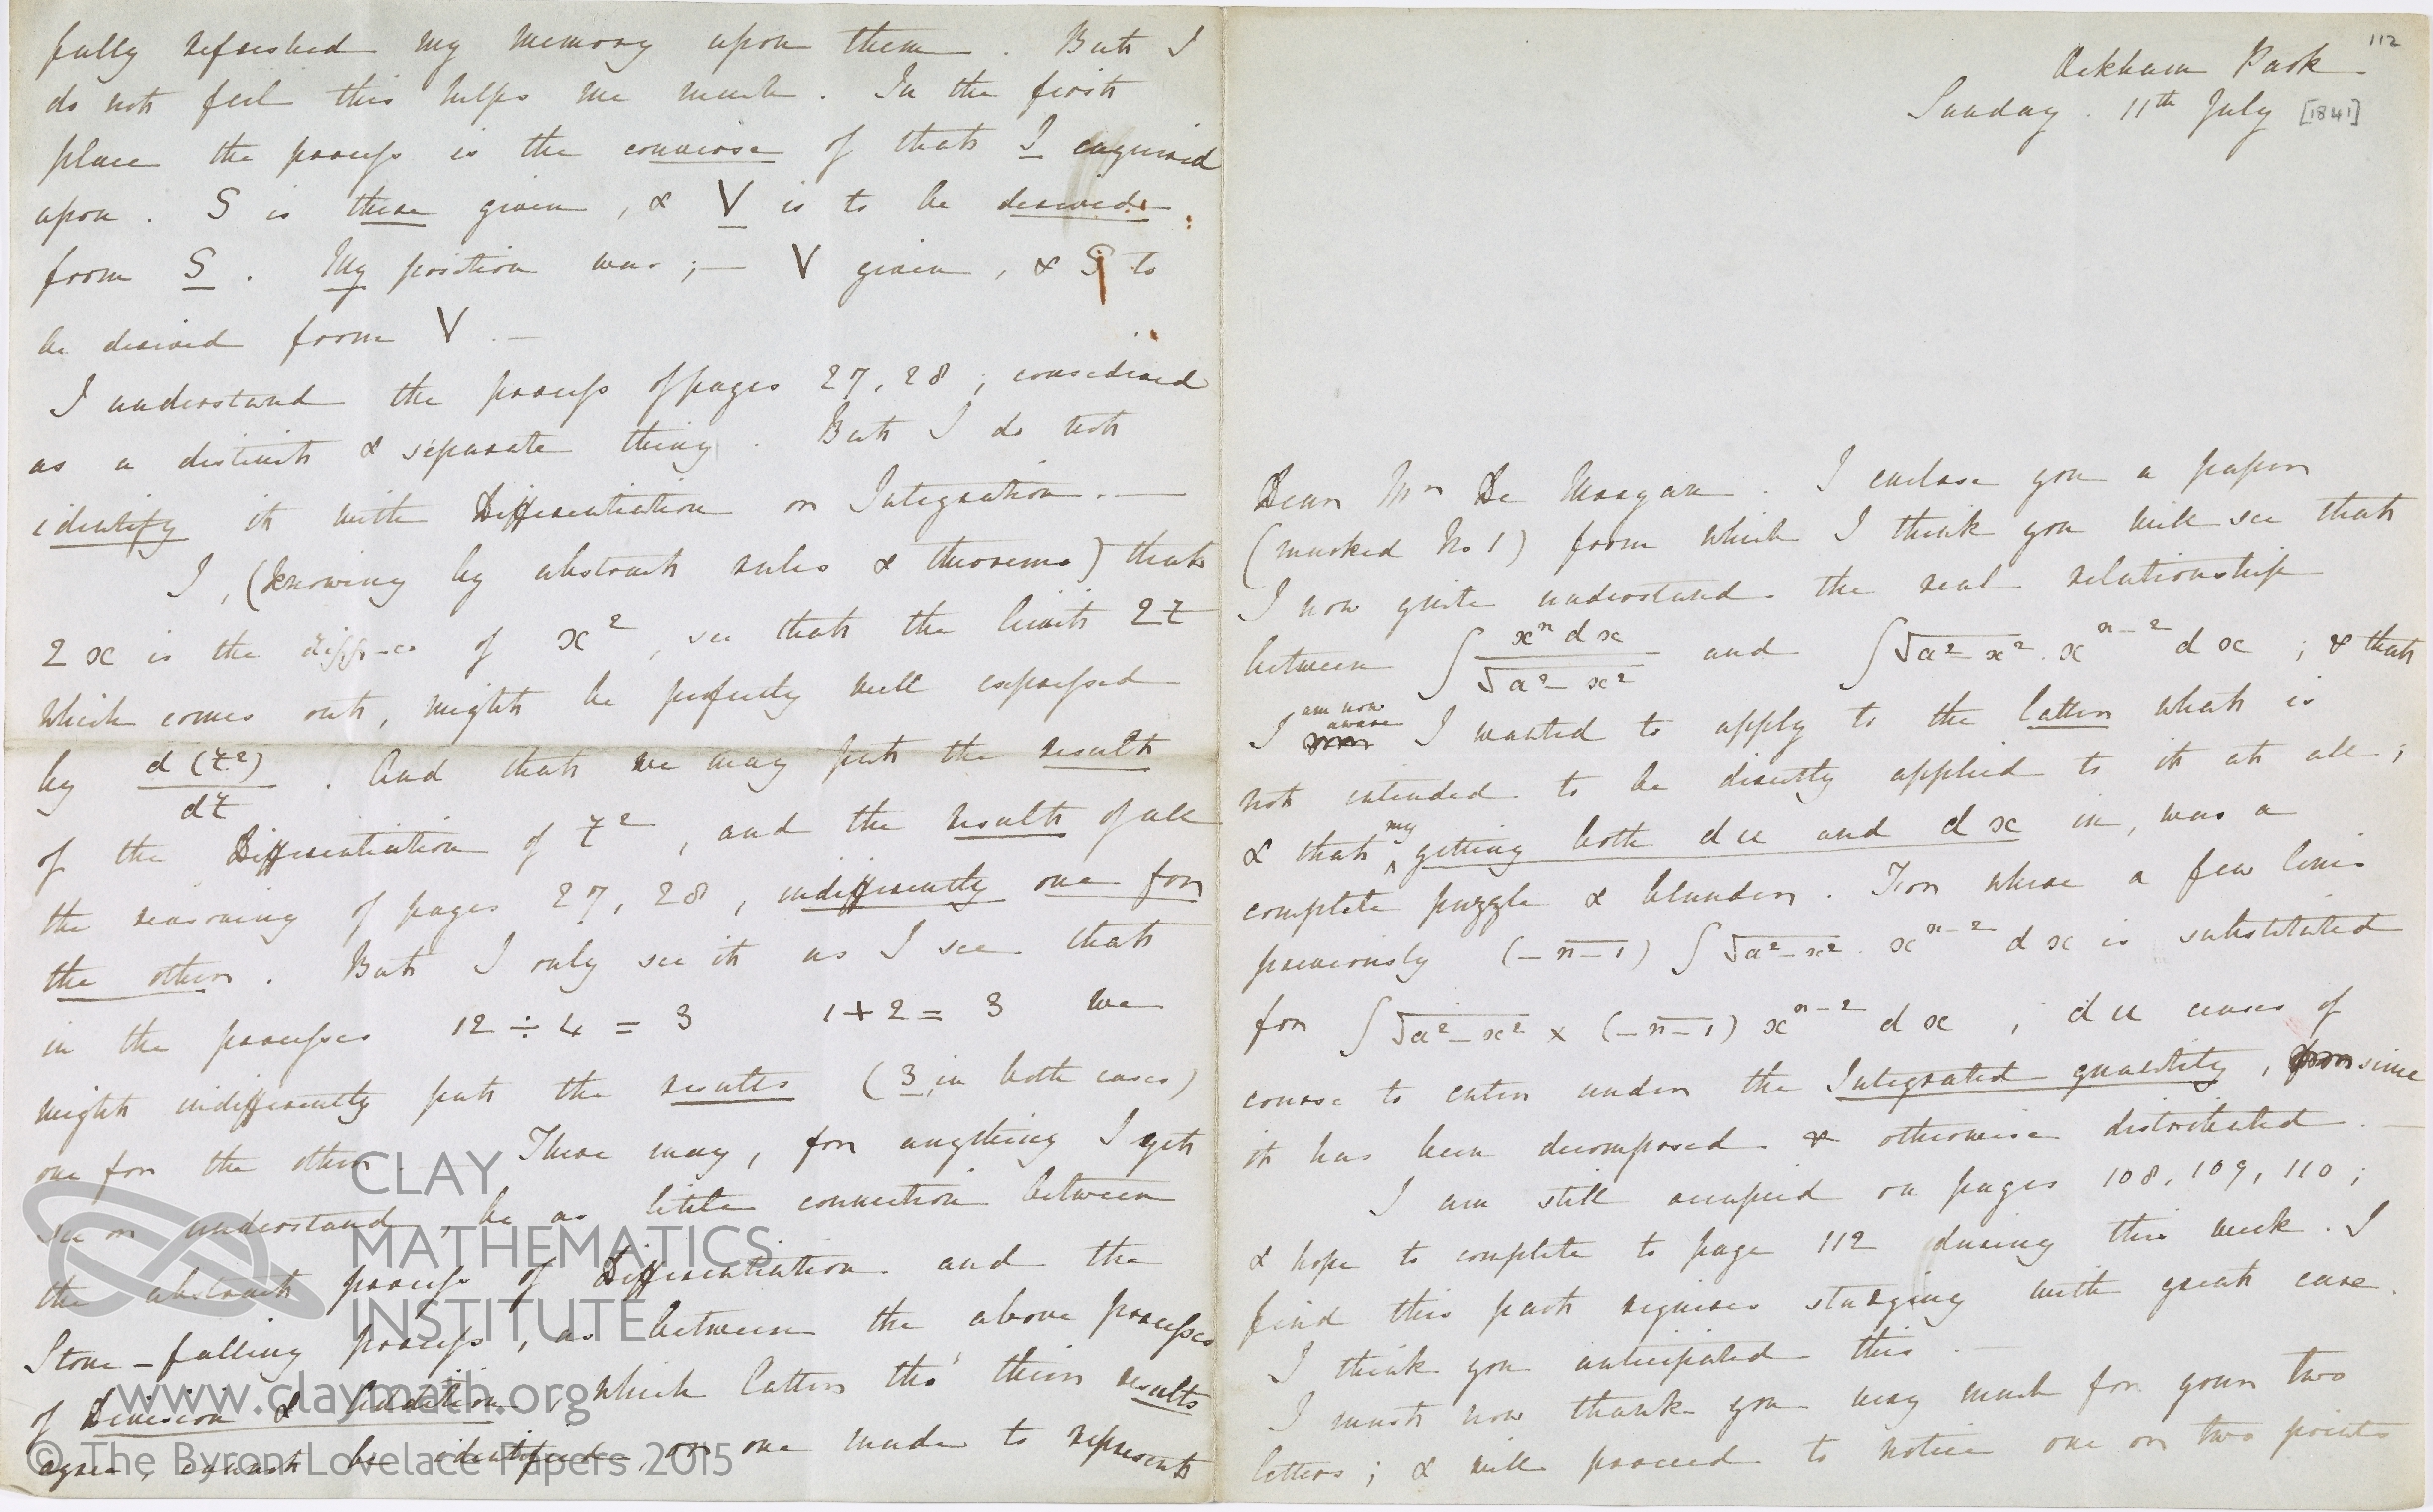 112
Ockham Park
Sunday. 11th July [1841]
Dear Mr De Morgan. I enclose you a paper
(marked No 1) from which I think you will see that
I now quite understand the real relationship
between ∫ xⁿdx / √a²-x² and ∫√a²-x². xⁿ⁻²dx ; & that
I am now aware I wanted to apply to the latter what is
not intended to be directly applied to it at all ;
& that my getting both du and dx in, was a
complete puzzle & blunder. For where a few lines
previously (-n-1) ∫√a²-x². xⁿ⁻² dx is substituted
for ∫√a²-x² × (-n-1) xⁿ⁻² dx , du ceases of
course to enter under the Integrated quantity, since
it has been decomposed & otherwise distributed. —
I am still occupied on pages 108, 109, 110 ;
& hope to complete to page 112 during this week. I
find this part requires studying with great care.
I think you anticipated this. —
I must now thank you very much for your two
letters ; & will proceed to notice one or two points
fully refreshed my memory upon them. But I
do not feel this helps me much. In the first
place the process is the converse of that I enquired
upon. S is there given, & V is to be derived
from S. My position was ;— V given, & S to
be derived from V. —
I understand the process of pages 27, 28 ; considered
as a distinct & separate thing. But I do not
identify it with Differentiation or Integration. —
I, (knowing by abstract rules & theorems) that
2x is the diffl co of x², see that the limit 2t
which comes out, might be perfectly well expressed
by d(t²) / dt . And that we may put the result
of the Differentiation of t², and the result of all
the reasoning of pages 27, 28, indifferently one for
the other. But I only see it as I see that
in the processes 12 ÷ 4 = 3 1+2 = 3 we
might indifferently put the results (3 in both cases)
one for the other. There may, for anything I yet
see or understand, be as little connection between
the abstract process of Differentiation and the
Stone-falling process, as between the above processes
of Division & Addition, which latter tho' their results
agree, cannot be identified, or one made to represent
CLAY
MATHEMATICS
INSTITUTE
www.claymath.org
© The Byron Lovelace Papers 2015